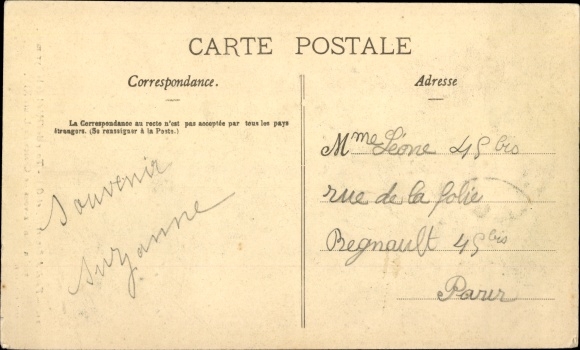 CARTE POSTALE
Correspondance.
La Correspondance au recto n'est pas acceptée par tous les pays
étrangers. (Se renseigner à la Poste.)
Souvenir
Suzanne
Adresse
Mme Léone 45 bis
rue de la folie
Regnault 45 bis
Paris